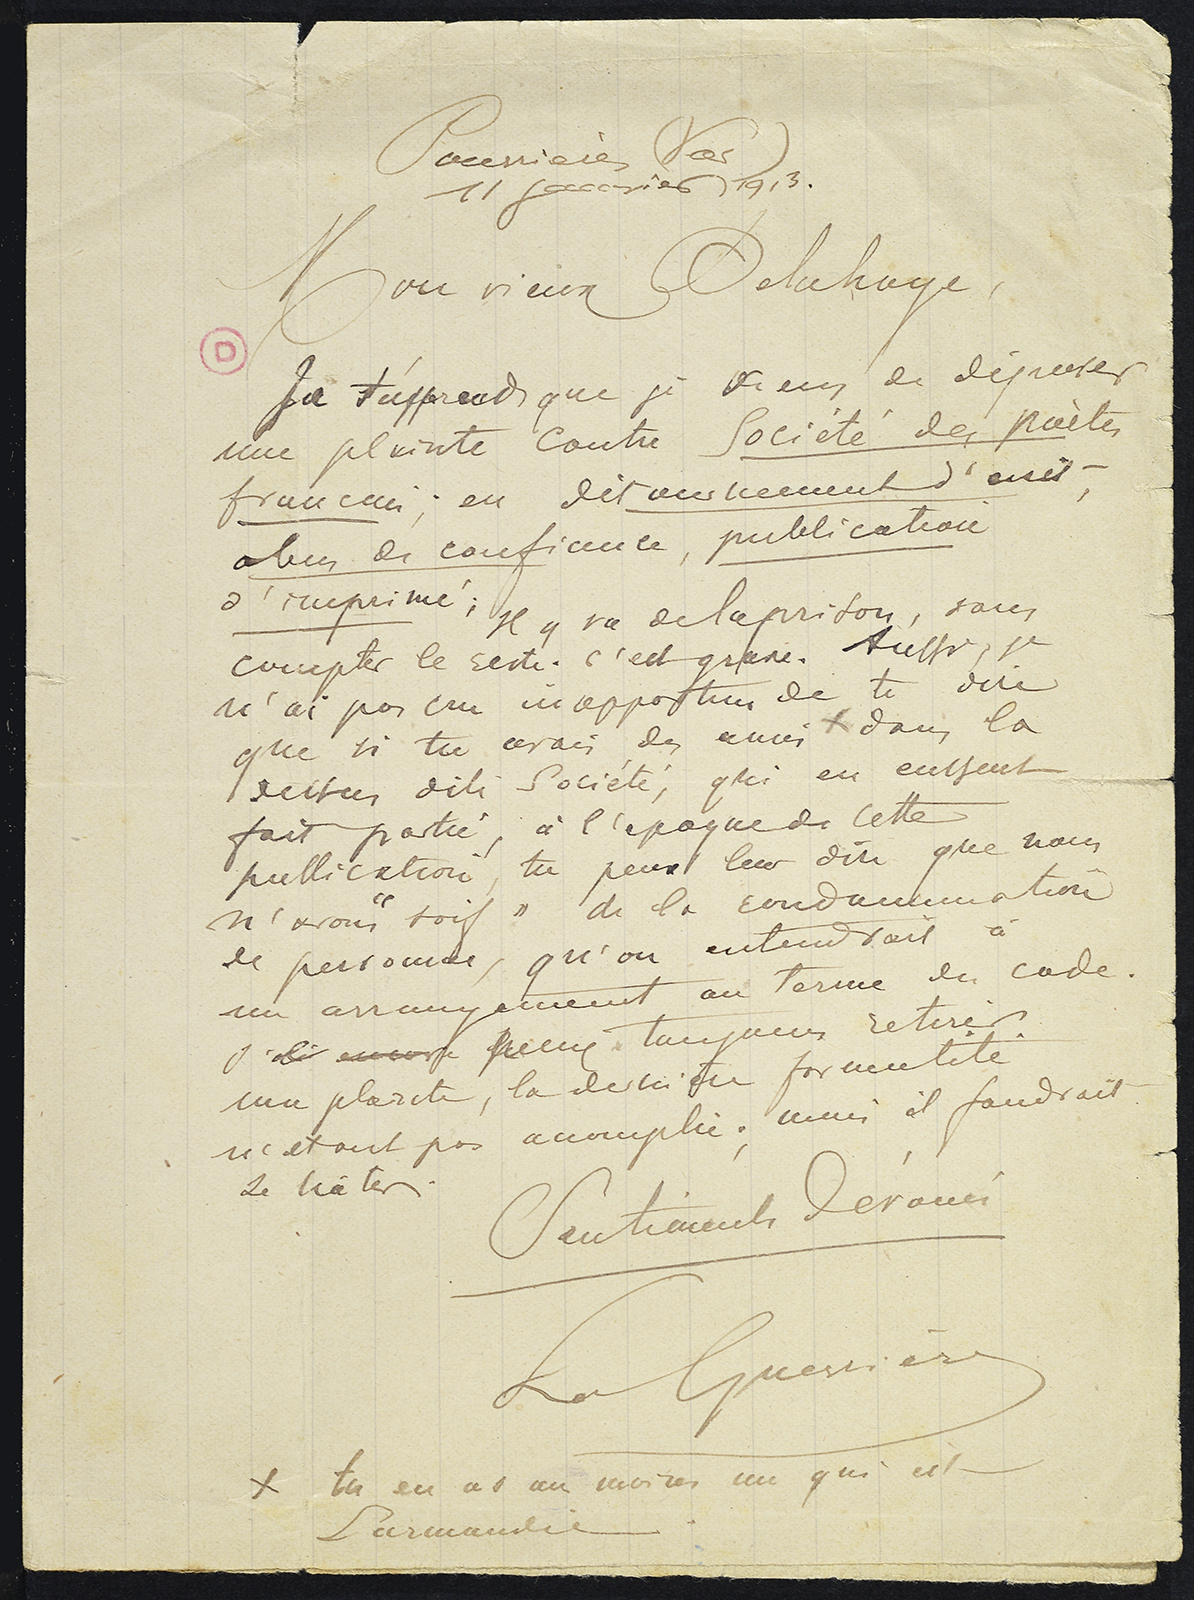 Pourrières (Var)
11 janvier 1913.
Mon vieux Delahaye,
D
Je t'apprends que je viens de déposer
une plainte contre Société des poètes
français ; en détournement d'écrit,
abus de confiance, publication
d'imprimé ; il y va de la prison, sans
compter le reste. C'est grave. Aussi, je
n'ai pas cru inopportun de te dire
que si tu avais des amis x dans la
dessus dite Société, qui en eussent
fait partie, à l'époque de cette
publication, tu peux leur dire que nous
n'avons " soif " de la condamnation
de personne, qu'on entendrait à
un arrangement au terme du code.
Je puis toujours retirer
ma plainte, la dernière formalité
n'étant pas accomplie ; mais il faudrait
se hâter.
Sentiments Dévoués
La Guerrière
x tu en as au moins un qui est
Larmandie.